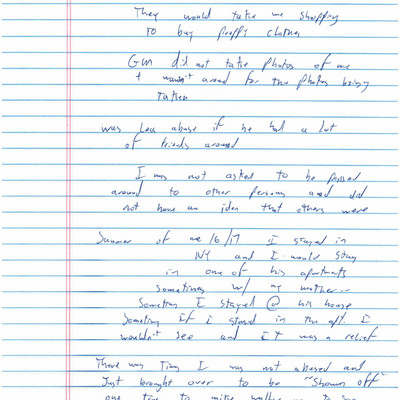 They would take me shopping
to buy preppy clothes
GM did not take photos of me
I wasn't around for the photos being
taken
was less abuse if he had a lot
of friends around
I was not asked to be passed
around to other persons and did
not have an idea that others were
Summer of me 16/17 I stayed in
NY and I would stay
in one of his apartments
sometimes w/ my mother
Sometimes I stayed @ his house
Sometimes if I stayed in the apt. I
wouldn't see and it was a relief
There was times I was not abused and
Just brought over to be "Shown off"
one time to